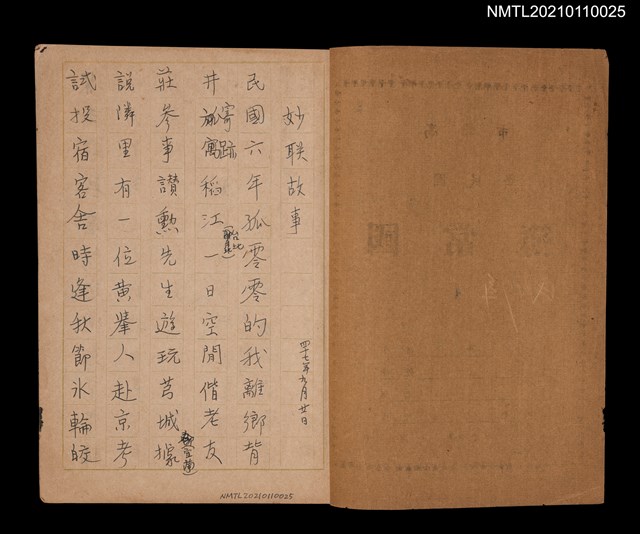 NMTL20210110025
妙联故事
四十七年九月廿日
民國六年孤零零的我離鄉背
井寄跡稻江一日空閒偕老友
台北
莊參事讃勲先生遊玩莒城據
宜蘭
說隣里有一位黃舉人赴京考
試投宿客舍時逢秋節氷輪皎
NMTL20210110025